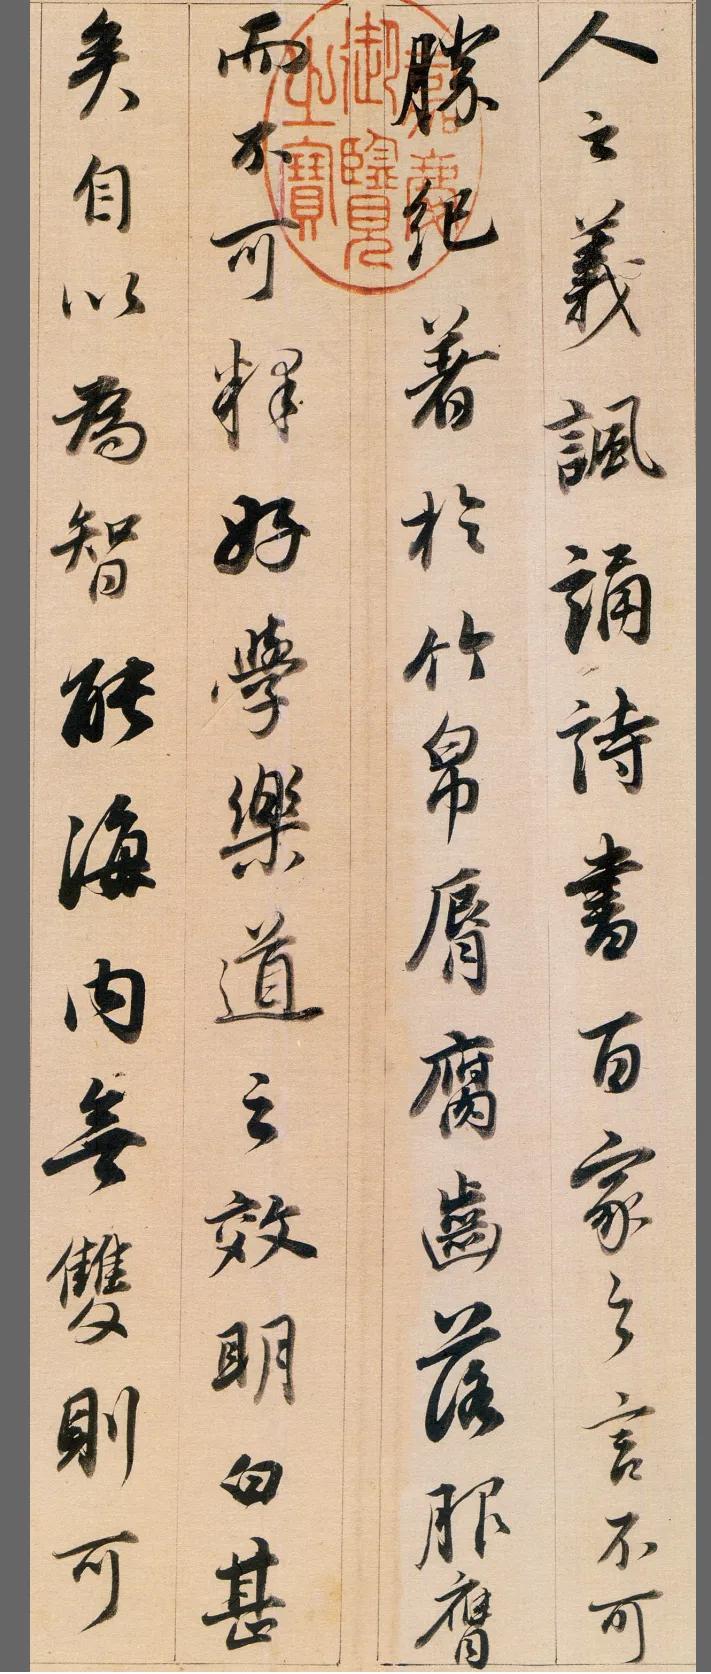 人之義諷誦詩書百家之言不可
勝紀著於竹帛脣腐齒落服膺
而不可釋好學樂道之效明白甚
矣自以為智能海内無雙則可
嘉慶御覽之寶